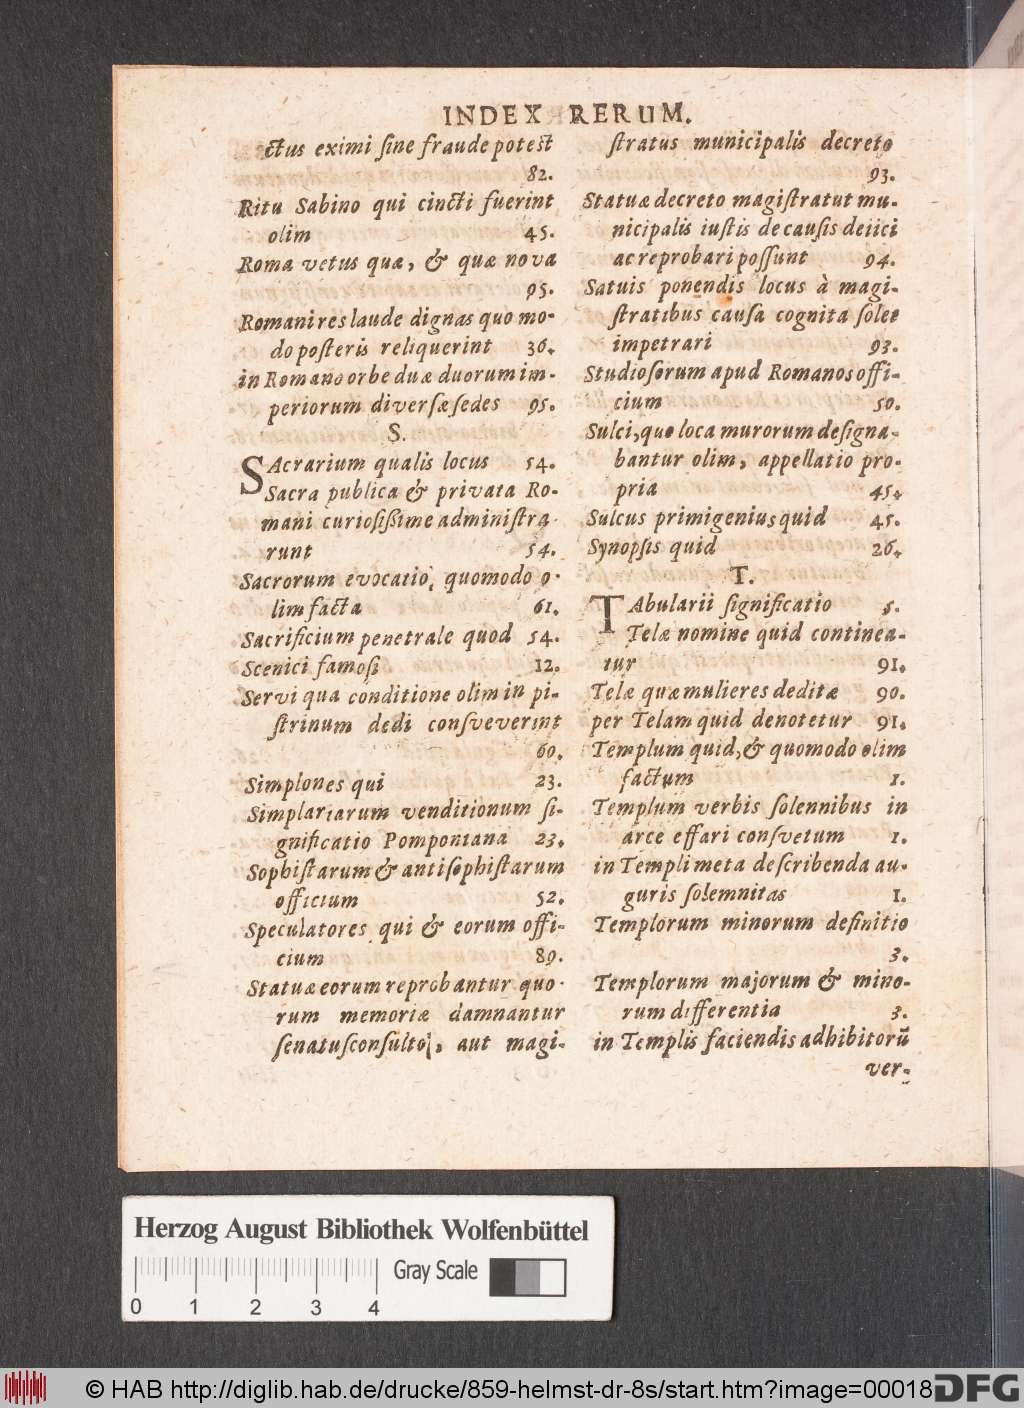 INDEX RERUM.
ctus eximi ſine fraude poteſt
82.
Ritu Sabino qui cincti fuerint
olim 45.
Roma vetus quæ, & quæ nova
95.
Romani res laude dignas quo mo-
do poſteris reliquerint 36.
in Romano orbe duæ duorum im-
periorum diverſæ ſedes 95.
S.
SAcrarium qualis locus 54.
Sacra publica & privata Ro-
mani curioſißime adminiſtra-
runt 54.
Sacrorum evocatio, quomodo o-
lim facta 61.
Sacrificium penetrale quod 54.
Scenici famoſi 12.
Servi qua conditione olim in pi-
ſtrinum dedi conſveverint
60.
Simplones qui 23.
Simplariarum venditionum ſi-
gnificatio Pomponiana 23.
Sophiſtarum & antiſophiſtarum
officium 52.
Speculatores qui & eorum offi-
cium 89.
Statuæ eorum reprobantur quo-
rum memoriæ damnantur
ſenatuſconſulto, aut magi-
ſtratus municipalis decreto
93.
Statuæ decreto magiſtratut mu-
nicipalis iuſtis de cauſis deiici
ac reprobari poſſunt 94.
Satuis ponendis locus à magi-
ſtratibus cauſa cognita ſolet
impetrari 93.
Studioſorum apud Romanos offi-
cium 50.
Sulci, quo loca murorum deſigna-
bantur olim, appellatio pro-
pria 45.
Sulcus primigenius quid 45.
Synopſis quid 26.
T.
TAbularii ſignificatio 5.
Telæ nomine quid continea-
tur 91.
Telæ quæ mulieres deditæ 90.
per Telam quid denotetur 91.
Templum quid, & quomodo olim
factum 1.
Templum verbis ſolennibus in
arce effari conſvetum 1.
in Templi meta deſcribenda au-
guris ſolemnitas 1.
Templorum minorum definitio
3.
Templorum majorum & mino-
rum differentia 3.
in Templis faciendis adhibitorū
ver-
Herzog August Bibliothek Wolfenbüttel
Gray Scale
0 1 2 3 4
© HAB http://diglib.hab.de/drucke/859-helmst-dr-8s/start.htm?image=00018
DFG